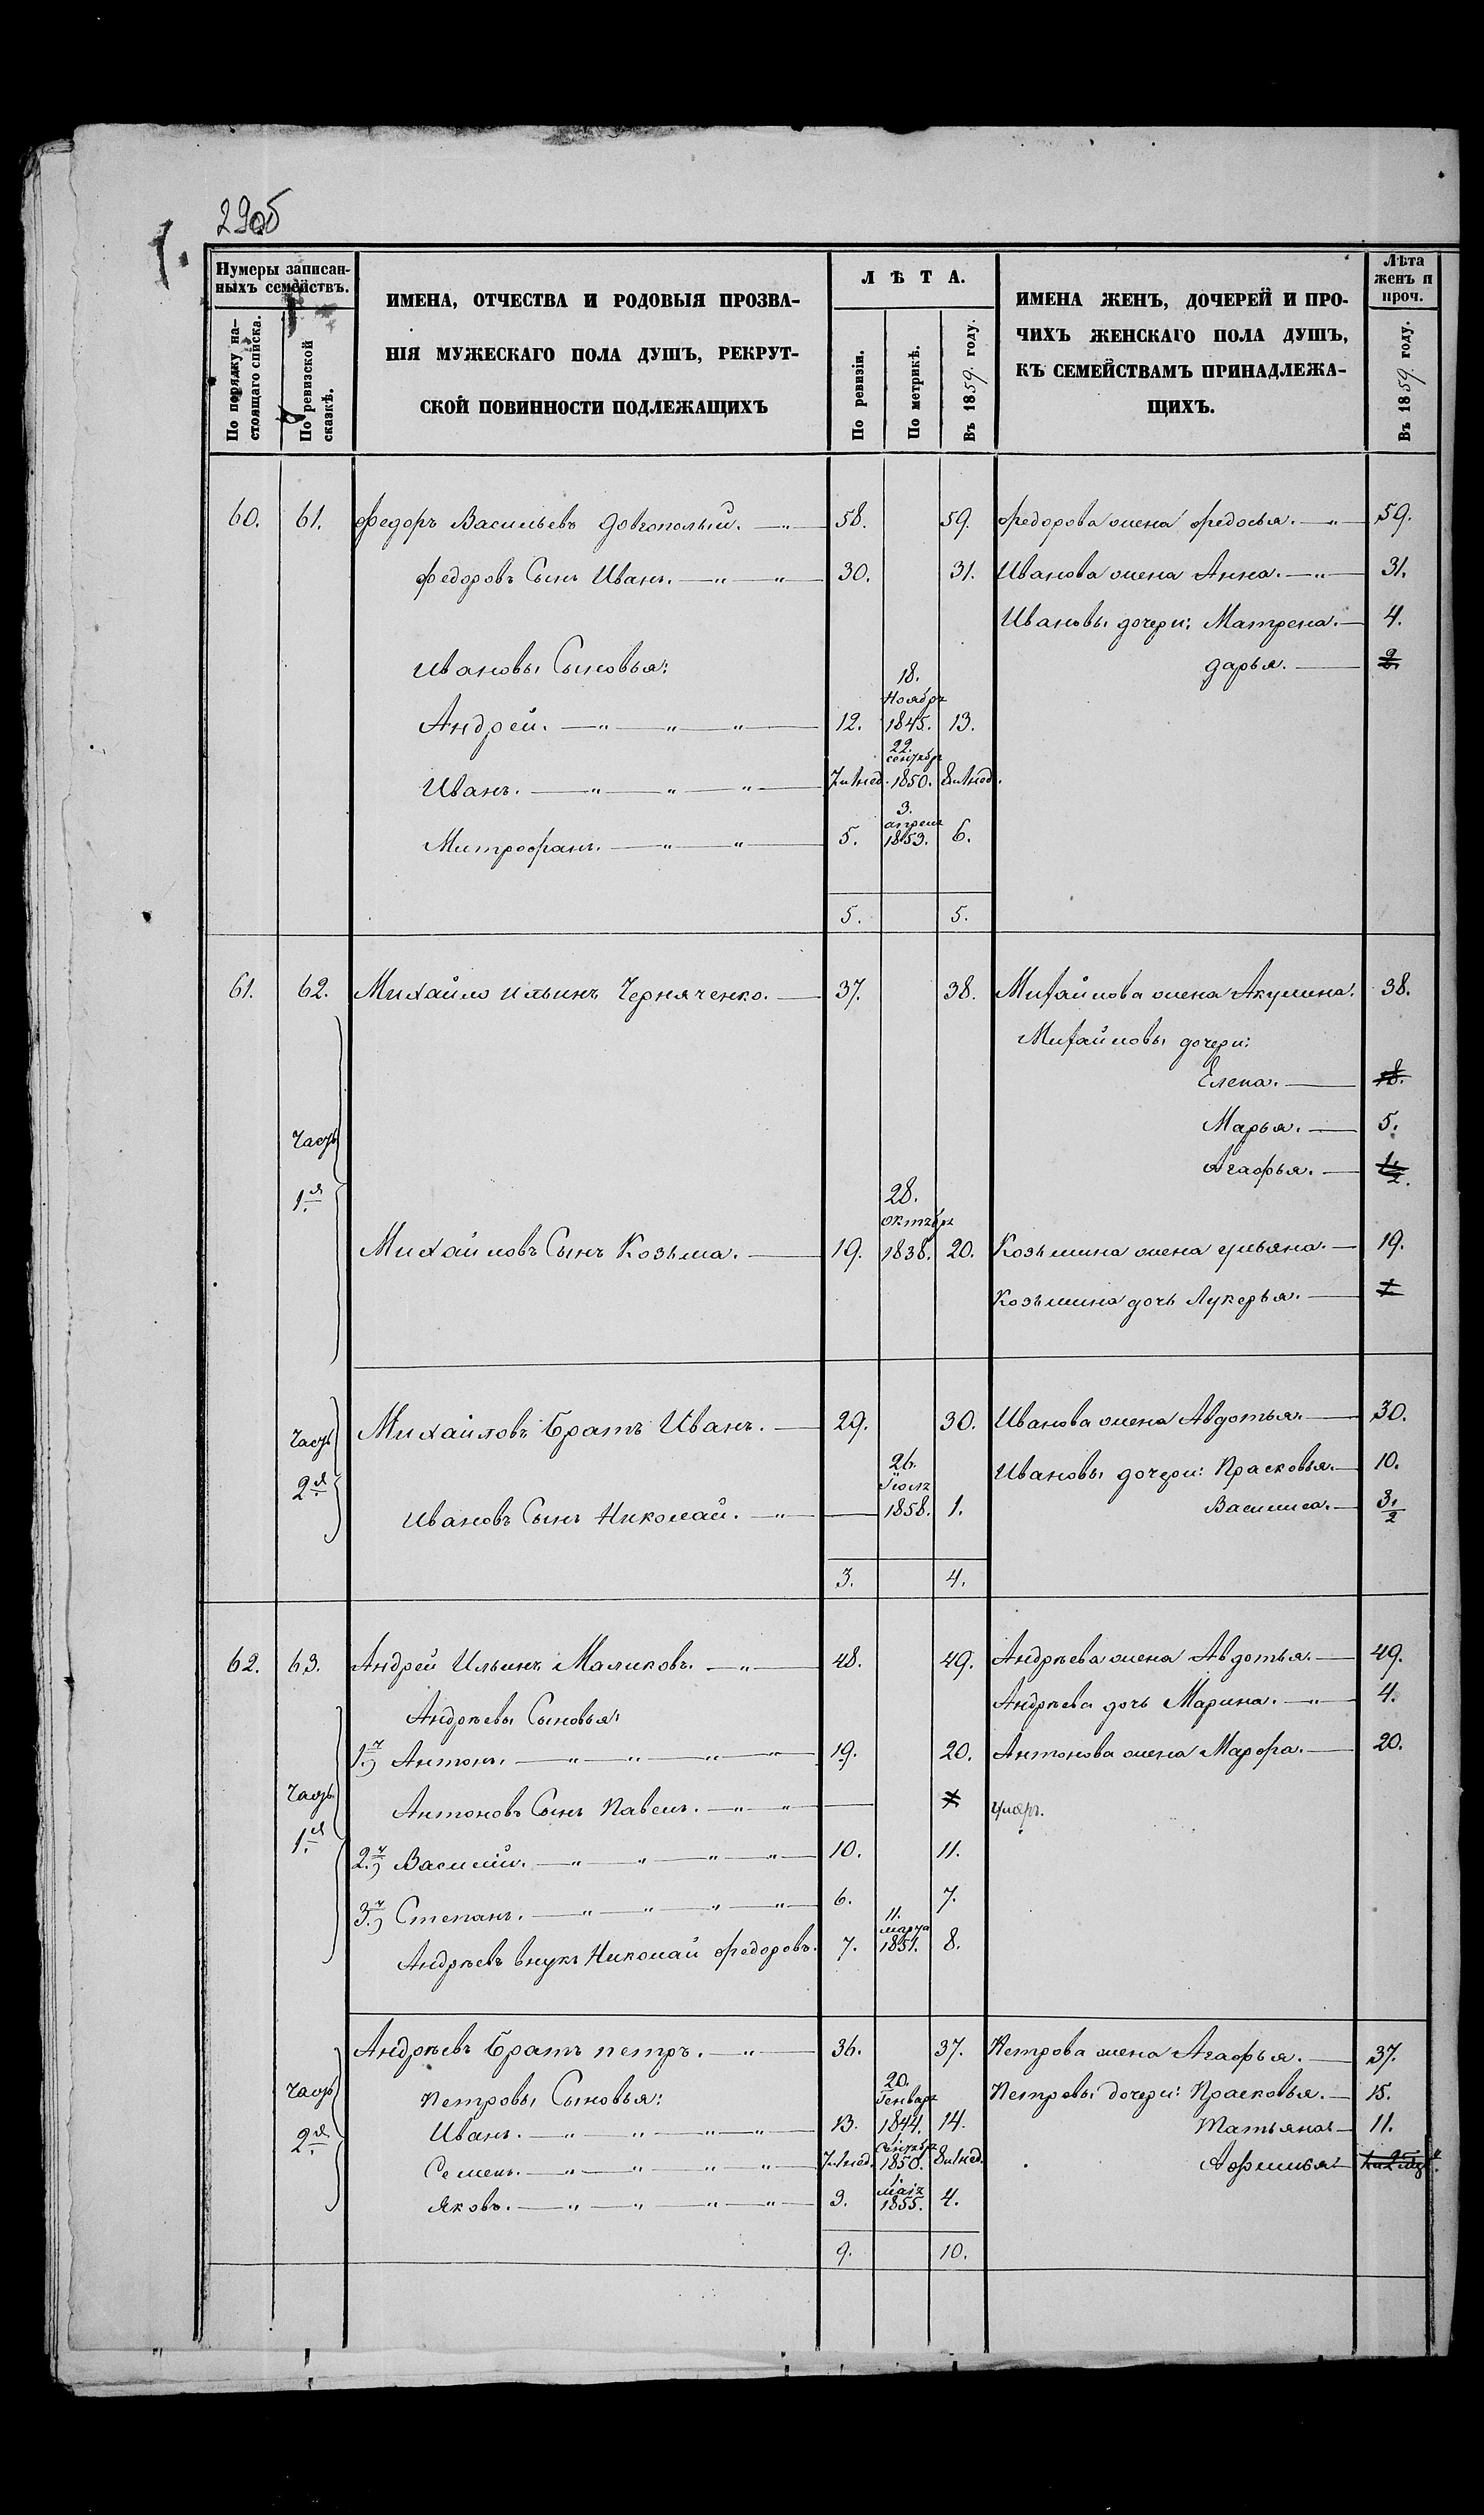 29об
Нумеры записан-
ныхъ семействъ.
По порядку на-
стоящаго списка.
По ревизской
сказкѣ.
ИМЕНА, ОТЧЕСТВА И РОДОВЫЯ ПРОЗВА-
НІЯ МУЖЕСКАГО ПОЛА ДУШЪ, РЕКРУТ-
СКОЙ ПОВИННОСТИ ПОДЛЕЖАЩИХЪ
ЛѢТА.
По ревизіи.
По метрикѣ.
Въ 1859. году.
ИМЕНА ЖЕНЪ, ДОЧЕРЕЙ И ПРО-
ЧИХЪ ЖЕНСКАГО ПОЛА ДУШЪ,
КЪ СЕМЕЙСТВАМЪ ПРИНАДЛЕЖА-
ЩИХЪ.
Лѣта
женъ и
проч.
Въ 1859. году.
60. 61. Федоръ Васильевъ Довгополый. — 58. 59. Федорова жена Федосья. — 59.
Федоровъ Сынъ Иванъ. — 30. 31. Иванова жена Анна. — 31.
Ивановы дочери: Матрена. — 4.
Ивановы Сыновья: Дарья. — 2.
18.
Ноября
Андрей. — 12. 1845. 13.
22.
сентября
Иванъ. — 1850.
3.
апреля
Митрофанъ. — 5. 1853. 6.
5. 5.
61. 62. Михайло Ильинъ Черняченко. — 37. 38. Михайлова жена Акулина. 38.
Михайловы дочери:
Елена. — 18.
Часть Марья. — 5.
1.я Агафья. — 1/2.
28.
октября
Михайловъ Сынъ Козьма. — 19. 1838. 20. Козьмина жена Ульяна. — 19.
Козьмина дочь Лукерья. — 1
Часть Михайловъ братъ Иванъ. — 29. 30. Иванова жена Авдотья. — 30.
2.я 26. Ивановы дочери: Прасковья. — 10.
Іюля
Ивановъ Сынъ Николай. — 1858. 1. Василиса. — 3/2
3. 4.
62. 63. Андрей Ильинъ Маликовъ. — 48. 49. Андрѣева жена Авдотья. — 49.
Андрѣевы Сыновья: Андрѣева дочь Марина. — 4.
1.й) Антонъ. — 19. 20. Антонова жена Марфа. — 20.
Часть Антоновъ Сынъ Павелъ. — умеръ.
1.я 2.й) Василій. — 10. 11.
3.й) Степанъ. — 6. 7.
11.
марта
Андрѣевъ внукъ Николай Федоровъ. 7. 1851. 8.
Андрѣевъ братъ Петръ. — 36. 37. Петрова жена Агафья. — 37.
20.
Генваря
Часть Петровы Сыновья: Петровы дочери: Прасковья. — 15.
2.я Иванъ. — 13. 1844. 14. Татьяна — 11.
Сентября
Семенъ. — 1850. Афимья —
1.
мая
Яковъ. — 3. 1855. 4.
9. 10.